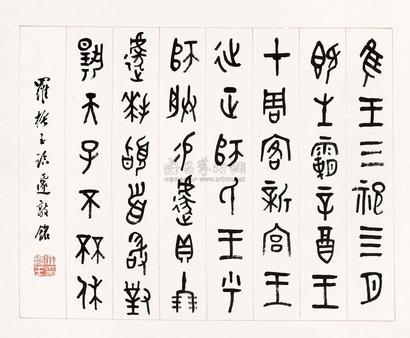 隹王三祀亖月
既生霸辛酉王
才周客新宮王
征正師氏王乎
師朕易遽貝朋
遽拜𩒨首敢對
揚天子不㔻休
羅振玉臨遽敦銘